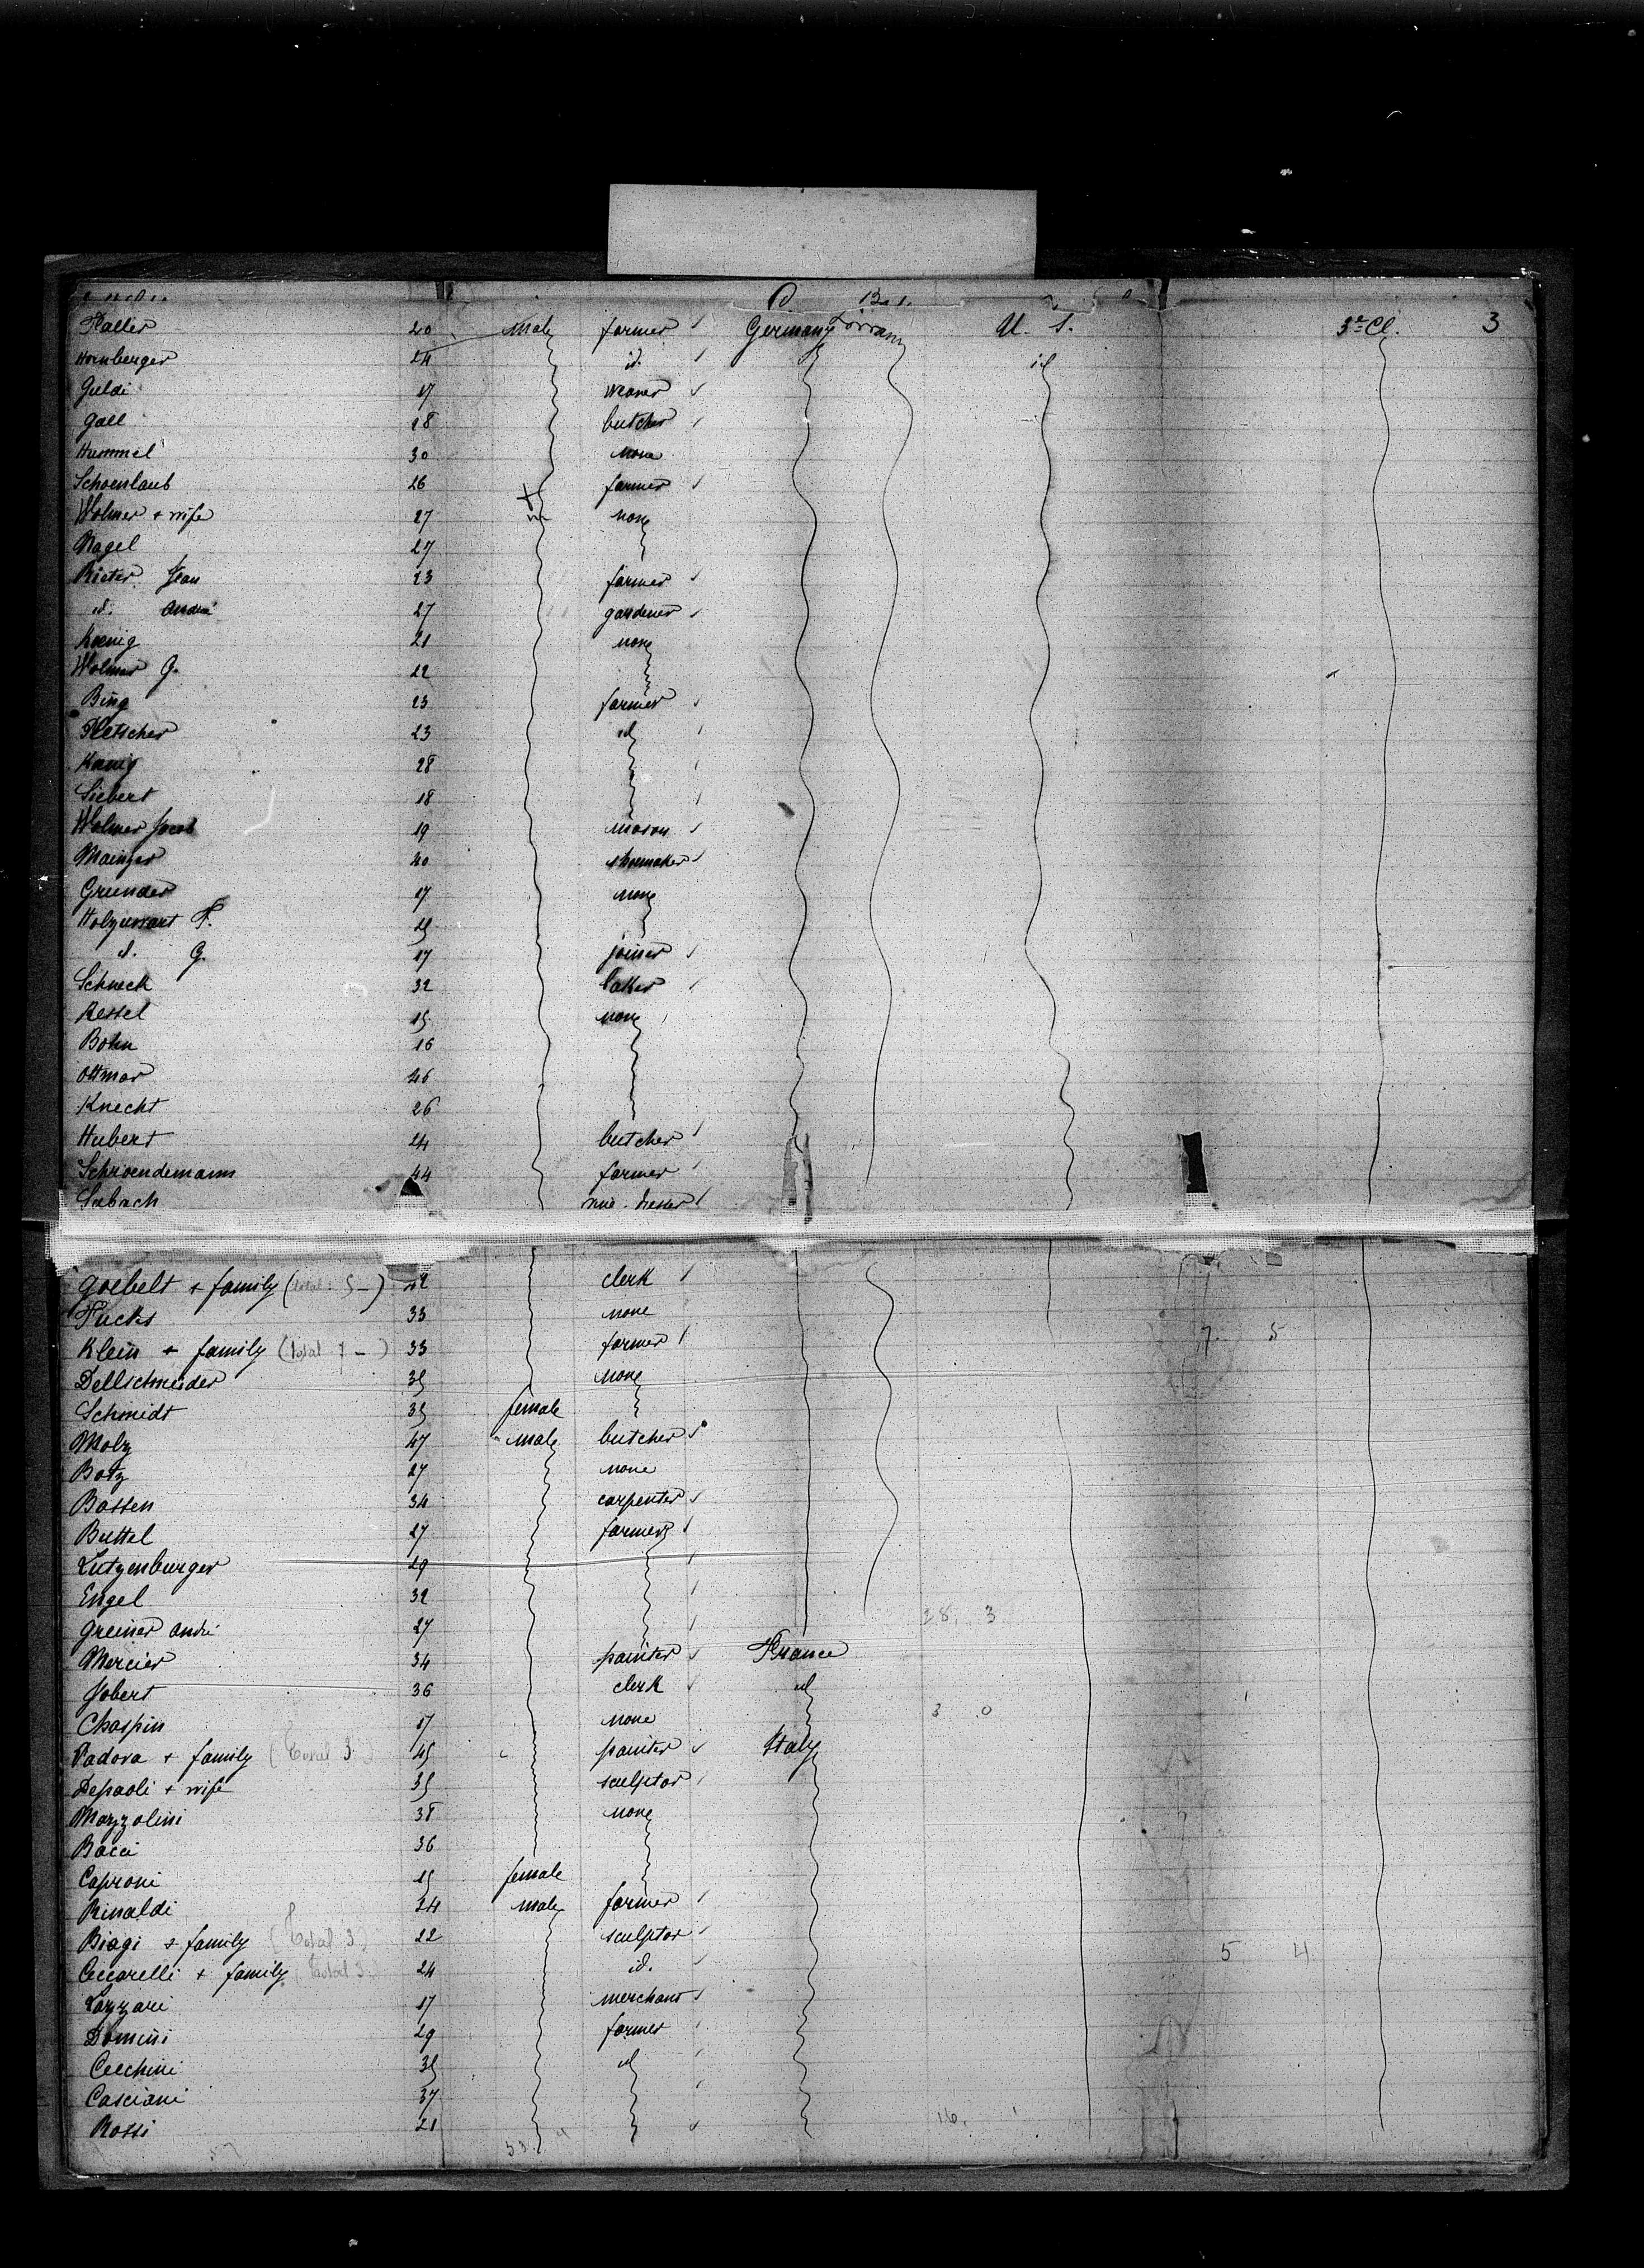 Haller 20 male farmer Germany U. S. 3e Cl. 3
Hornberger 24 id. id
Guldi 17 weaver
Gall 18 butcher
Hummel 30 none
Schoenlaub 26 farmer
Wolmer + wife 27 none
Nagel 27
Rieter Jean 23 farmer
id. André 27 gardener
Koenig 21 none
Wolmer G. 22
Bing 23 farmer
Pletscher 23 id
Koenig 28
Siebert 18
Wolmer Jacob 19 mason
Mainzer 40 shoemaker
Grunder 17 none
Holzwart F.
id. G. 17 joiner
Schneck 32 baker
Ressel 15 none
Bohn 16
Ottmar 46
Knecht 26
Hubert 24 butcher
Schroendemann 44 farmer
Sabach
Goebelt + family (total: 5 -) 42 clerk
Fucks 33 none
7 5
Klein + family (total 7 -) 33 farmer
Dellschneider 35 none
Schmidt 35 female
Molz 47 male butcher
Botz 27 none
Bossen 34 carpenter
Buttel 27 farmer
Lutzenburger 29
Engel 32
28, 3
Greiner André 27
Mercier 34 painter France
Jobert 36 clerk id
Chaspin 17 none 3 0
Padova + family (Total 3.) 45 painter Italy
Depaoli + wife 35 sculptor
Mazzolini 38 none
Bacci 36
Caproni 15 female
Rinaldi 24 male farmer
Biagi + family (Total 3.) 22 sculptor
5 4
Ceccarelli + family (Total 3. 24 id.
Lazzari 17 merchant
Domini 29 farmer
Cecchini 35 id
Casciani 37
Rossi 21 16,
57 53